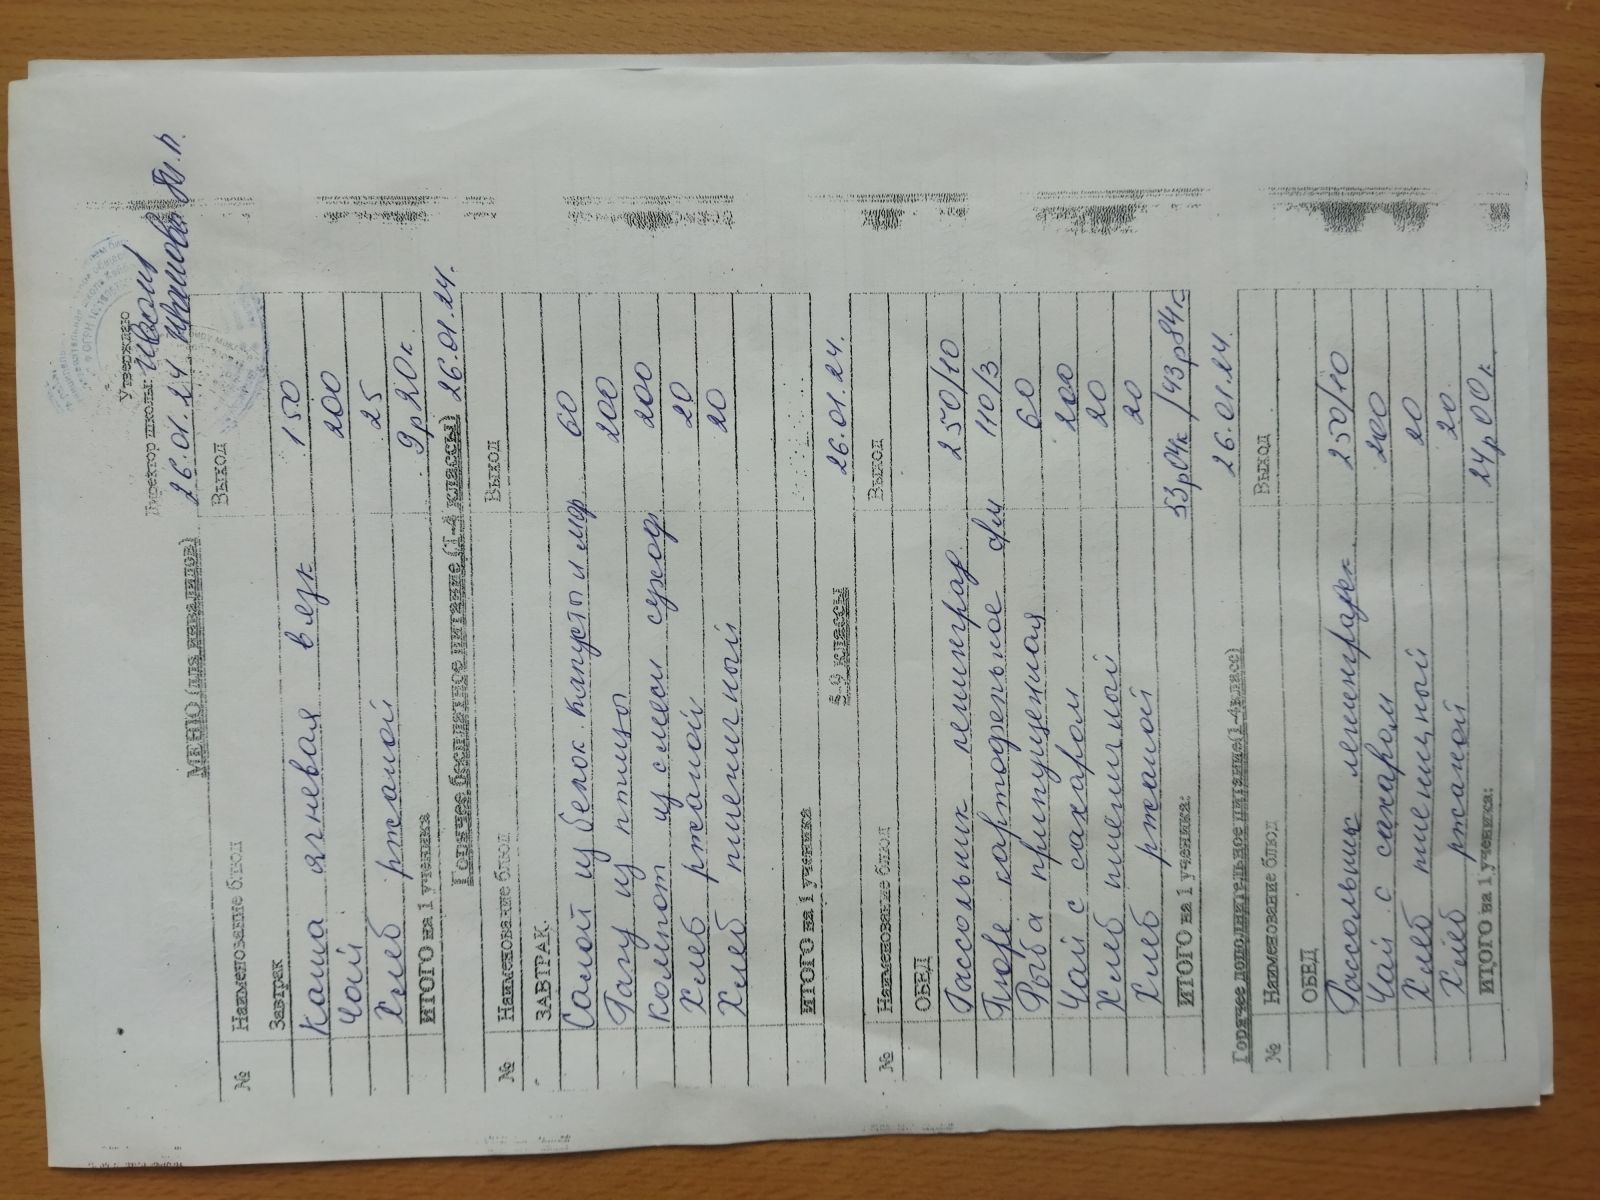 Утверждаю
Директор школы:
26.01.24
МЕНЮ (для инвалидов)
№ Наименование блюд Выход
Завтрак
Каша ячневая вязк 150
Чай 200
Хлеб ржаной 25
ИТОГО на 1 ученика 9р20к
Горячее бесплатное питание (1-4 классы) 26.01.24.
№ Наименование блюд Выход
ЗАВТРАК.
Салат из белок. капусты и мор 60
Рагу из птицы 200
Компот из смеси сухоф. 200
Хлеб ржаной 20
Хлеб пшеничный 20
ИТОГО на 1 ученика
5-9 классы 26.01.24.
№ Наименование блюд Выход
ОБЕД
Рассольник ленинград 250/10
Пюре картофельное с/м 110/3
Рыба припущенная 60
Чай с сахаром 200
Хлеб пшеничный 20
Хлеб ржаной 20
ИТОГО на 1 ученика: 53р04к /43р84к
26.01.24.
Горячее дополнительное питание(1-4класс)
№ Наименование блюд Выход
ОБЕД
Рассольник ленинградск 250/10
Чай с сахаром 200
Хлеб пшеничный 20
Хлеб ржаной 20
ИТОГО на 1 ученика: 24р00к